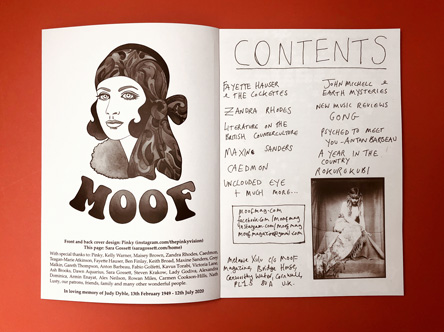 MOOF
Front and back cover design: Pinky (instagram.com/thepinkyvision)
This page: Sara Gossett (saragossett.com/home)
With special thanks to Pinky, Kelly Warner, Maisey Brown, Zandra Rhodes,
Teagan-Marie Atkinson, Fayette Hauser, Ben Finlay, Keith Broad, Maxine Sanders, Grey
Malkin, Gareth Thompson, Anton Barbeau, Fabio Golfetti, Victoria Lane,
Ash Brooks, Dawn Aquarius, Sara Gossett, Steven Krakow, Lady Godiva, Alexandra
Dominica, Anton Alex Neilson, Rowan Miles, Carmen Cookson-Hills, Nash
Lunty, our patrons, friends, family and many other wonderful people.
In loving memory of Judy Dyble, 13th February 1949 - 12th July 2020
CONTENTS
FAYETTE HAUSER
& THE COCKETTES
ZANDRA RHODES
LITERATURE ON THE
BRITISH COUNTERCULTURE
MAXINE SANDERS
CAEDMON
UNCLOUDED EYE
+ MUCH MORE...
moofmag.com
facebook.com/moofmag
instagram.com/moofmag
moofmagazine@gmail.com
Melanie Xulu c/o Moof
Magazine, Bridge House,
Cornwall,
U.K.
JOHN MICHELL &
EARTH MYSTERIES
NEW MUSIC REVIEWS
GONG
PSYCHED TO MEET
YOU - ANTON BARBEAU
A YEAR IN THE
COUNTRY
ROKUROKUBI